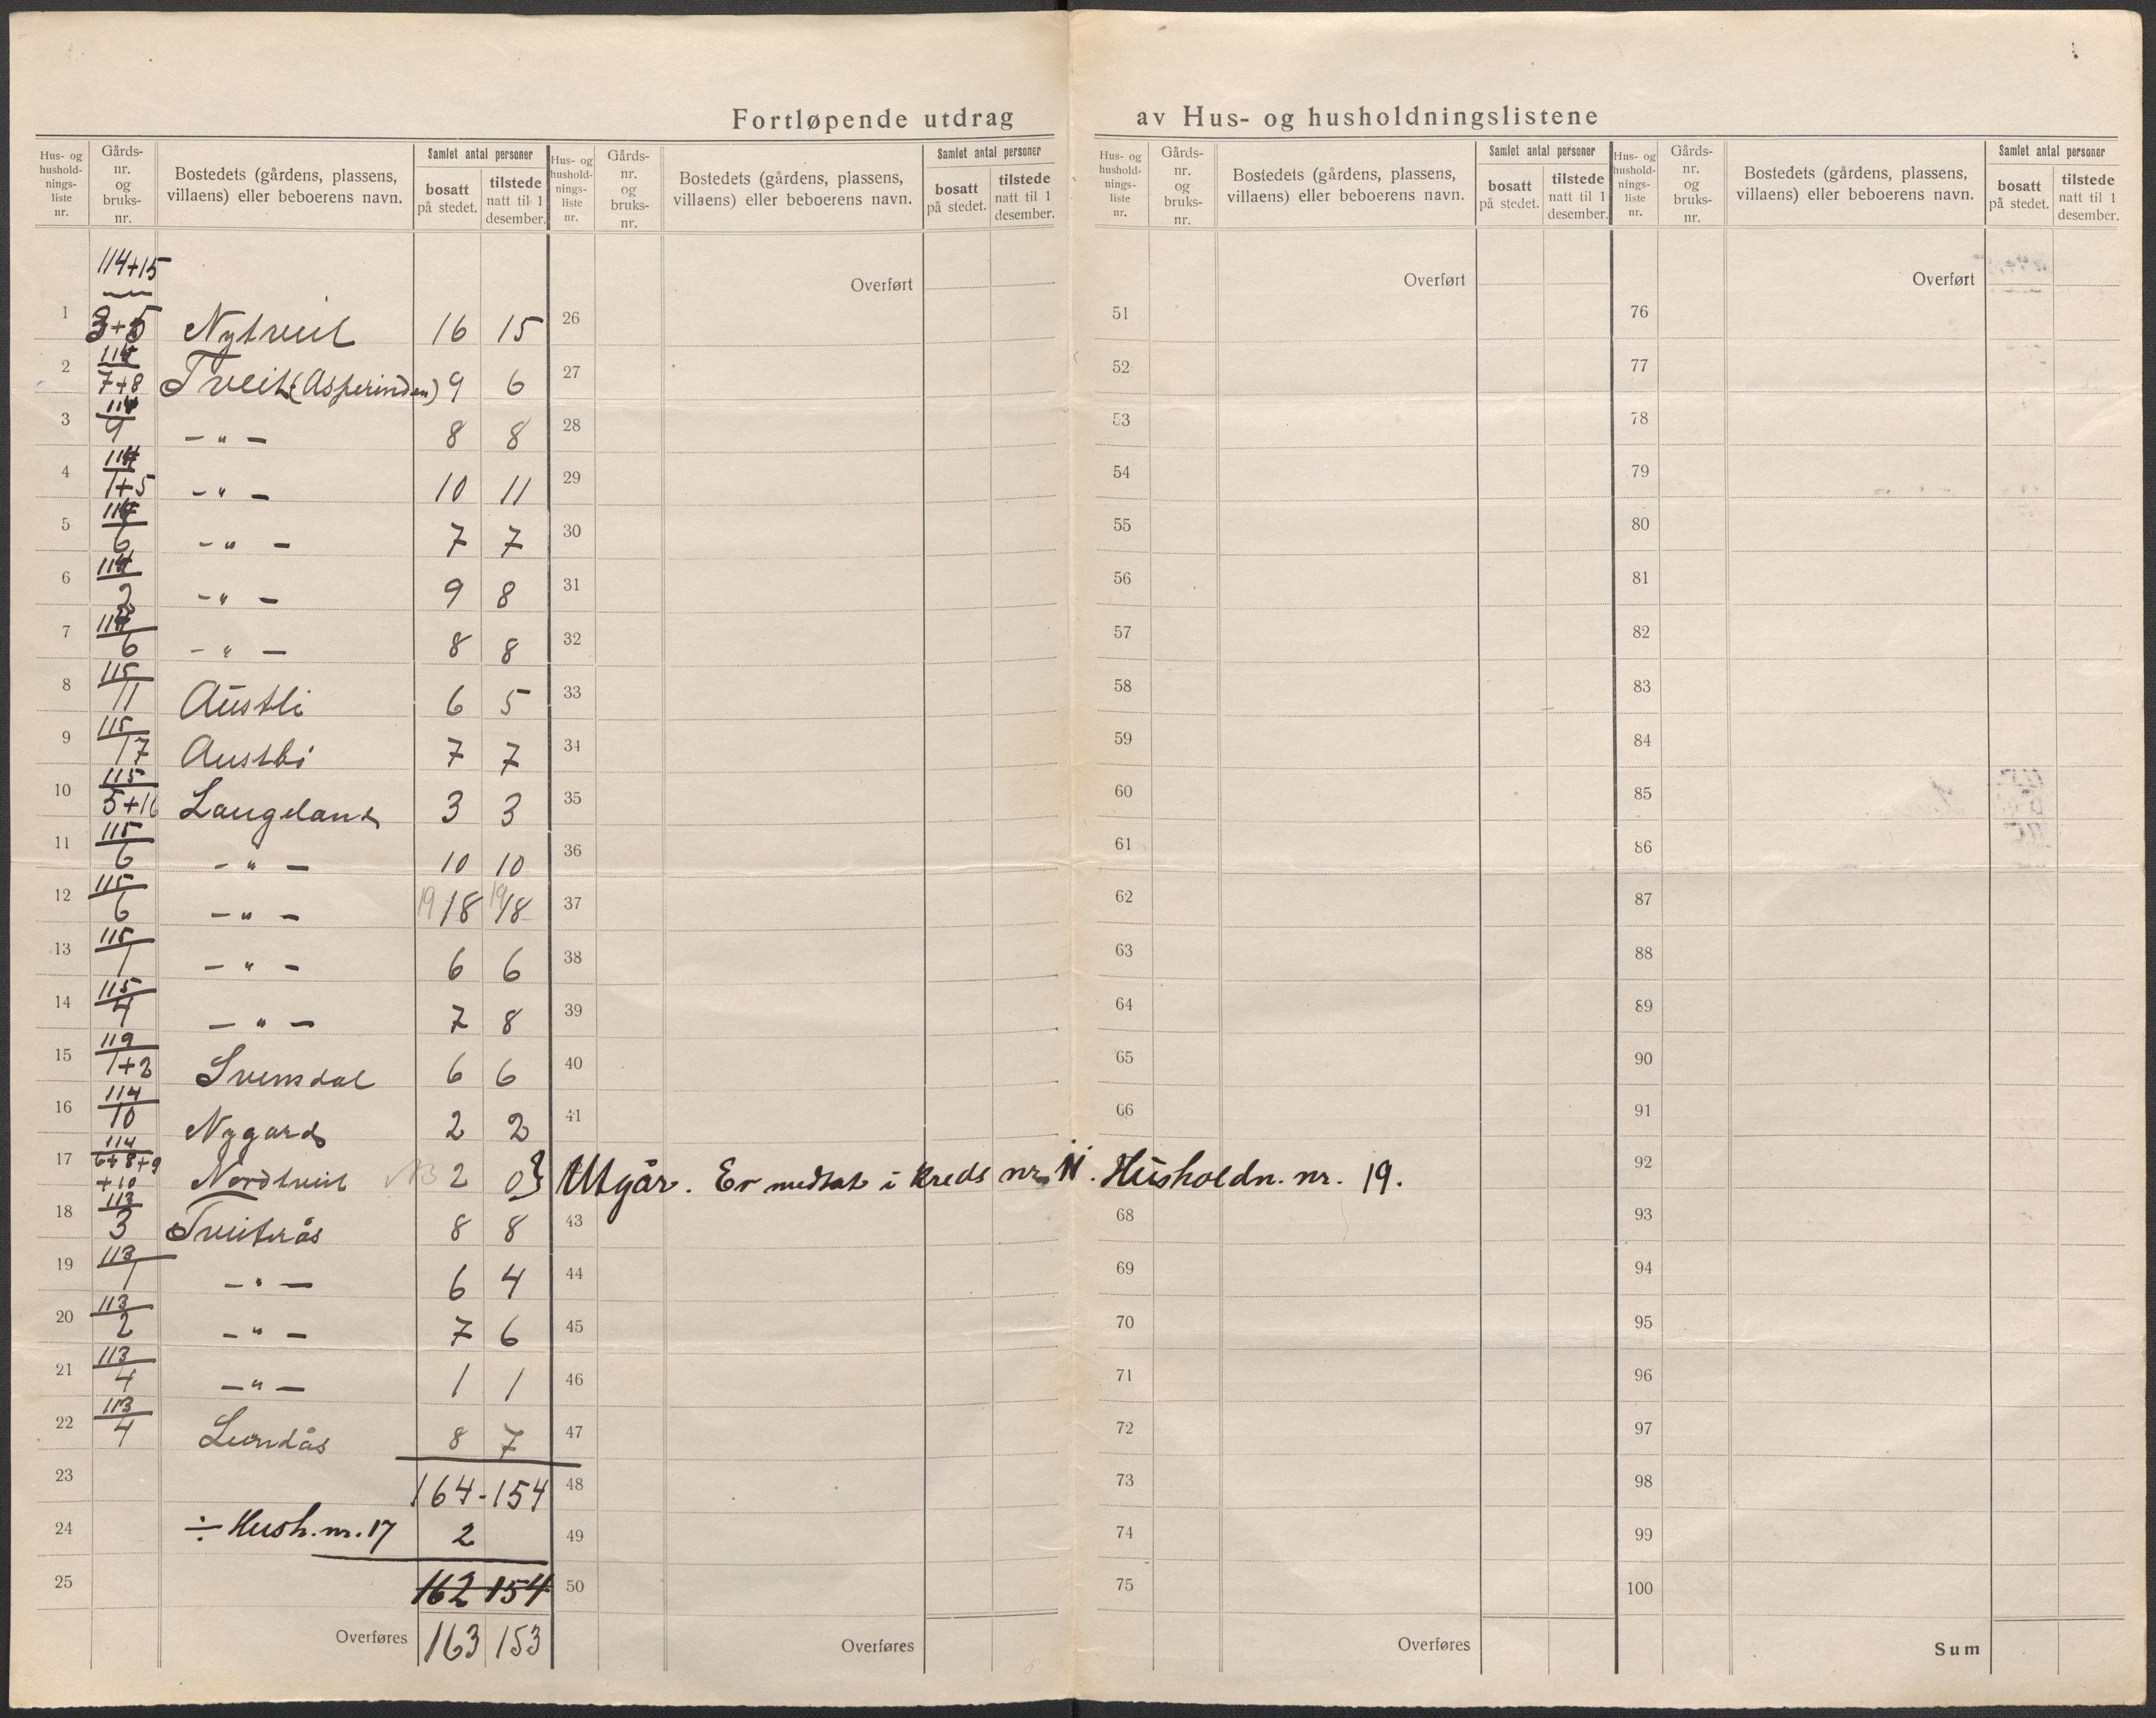 Fortløpende utdrag av Hus- og husholdningslistene
Hus- og hushold-nings-liste nr. | Gårds-nr. og bruks-nr. | Bostedets (gårdens, plassens, villaens) eller beboerens navn. | Samlet antal personer | bosatt på stedet. | tilstede natt til 1 desember.
Hus- og hushold-nings-liste nr. | Gårds-nr. og bruks-nr. | Bostedets (gårdens, plassens, villaens) eller beboerens navn. | Samlet antal personer | bosatt på stedet. | tilstede natt til 1 desember.
Hus- og hushold-nings-liste nr. | Gårds-nr. og bruks-nr. | Bostedets (gårdens, plassens, villaens) eller beboerens navn. | Samlet antal personer | bosatt på stedet. | tilstede natt til 1 desember.
Hus- og hushold-nings-liste nr. | Gårds-nr. og bruks-nr. | Bostedets (gårdens, plassens, villaens) eller beboerens navn. | Samlet antal personer | bosatt på stedet. | tilstede natt til 1 desember.
114+15
Overført Overført Overført
1 3+5 Nytveit 16 15 26 51 76
2 114/7+8 Tveit (Asperinden) 9 6 27 52 77
3 114/9 -"- 8 8 28 53 78
4 114/1+5 -"- 10 11 29 54 79
5 114/6 -"- 7 7 30 55 80
6 114/2 -"- 9 8 31 56 81
7 114/6 -"- 8 8 32 57 82
8 115/11 Austli 6 5 33 58 83
9 115/17 Austli 7 7 34 59 84
10 115/5+16 Langeland 3 3 35 60 85
11 115/6 -"- 10 10 36 61 86
12 115/6 -"- 19 18 19 18 37 62 87
13 115/1 -"- 6 6 38 63 88
14 115/4 -"- 7 8 39 64 89
15 119/1+2 Svensdal 6 6 40 65 90
16 114/10 Nygard 2 2 41 66 91
17 114/6+8+9+10 Nordtveit 2 0} Utgår. Er medtat i kreds nr. 11. Husholdn. nr. 19. 92
18 113/3 Tveiterås 8 8 43 68 93
19 113/1 -"- 6 4 44 69 94
20 113/2 -"- 7 6 45 70 95
21 113/4 -"- 1 1 46 71 96
22 113/4 Lundås 8 7 47 72 97
23 164-154 48 73 98
24 ÷ Hush. nr. 17 2 49 74 99
25 162 154 50 75 100
Overføres 163 153 Overføres Overføres Sum